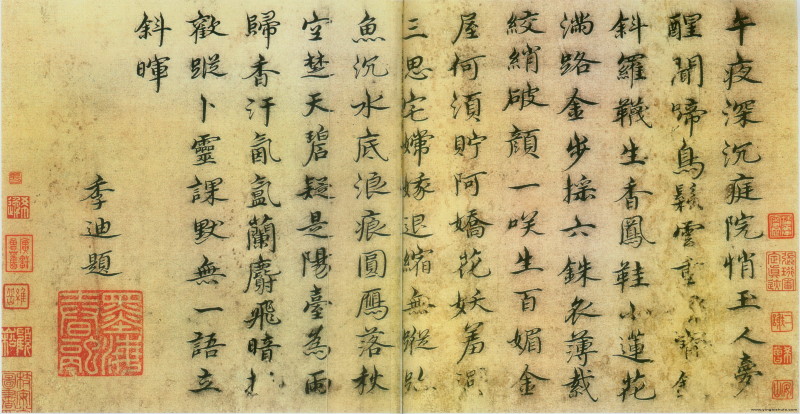 午夜深沉庭院悄玉人夢
醒聞啼鳥鬆雲重
斜羅韈生香鳳鞋小蓮花
滿路金步搖六銖衣薄裁
絞綃破顏一咲生百媚金
屋何須貯阿嬌花妖羞
三思宅嫦娥退縮無蹤跡
魚沉水底浪痕圓鴈落秋
空楚天碧疑是陽臺為雨
歸香汗氤氳蘭麝飛暗
歡蹤卜靈課默無一語立
斜暉
季迪題